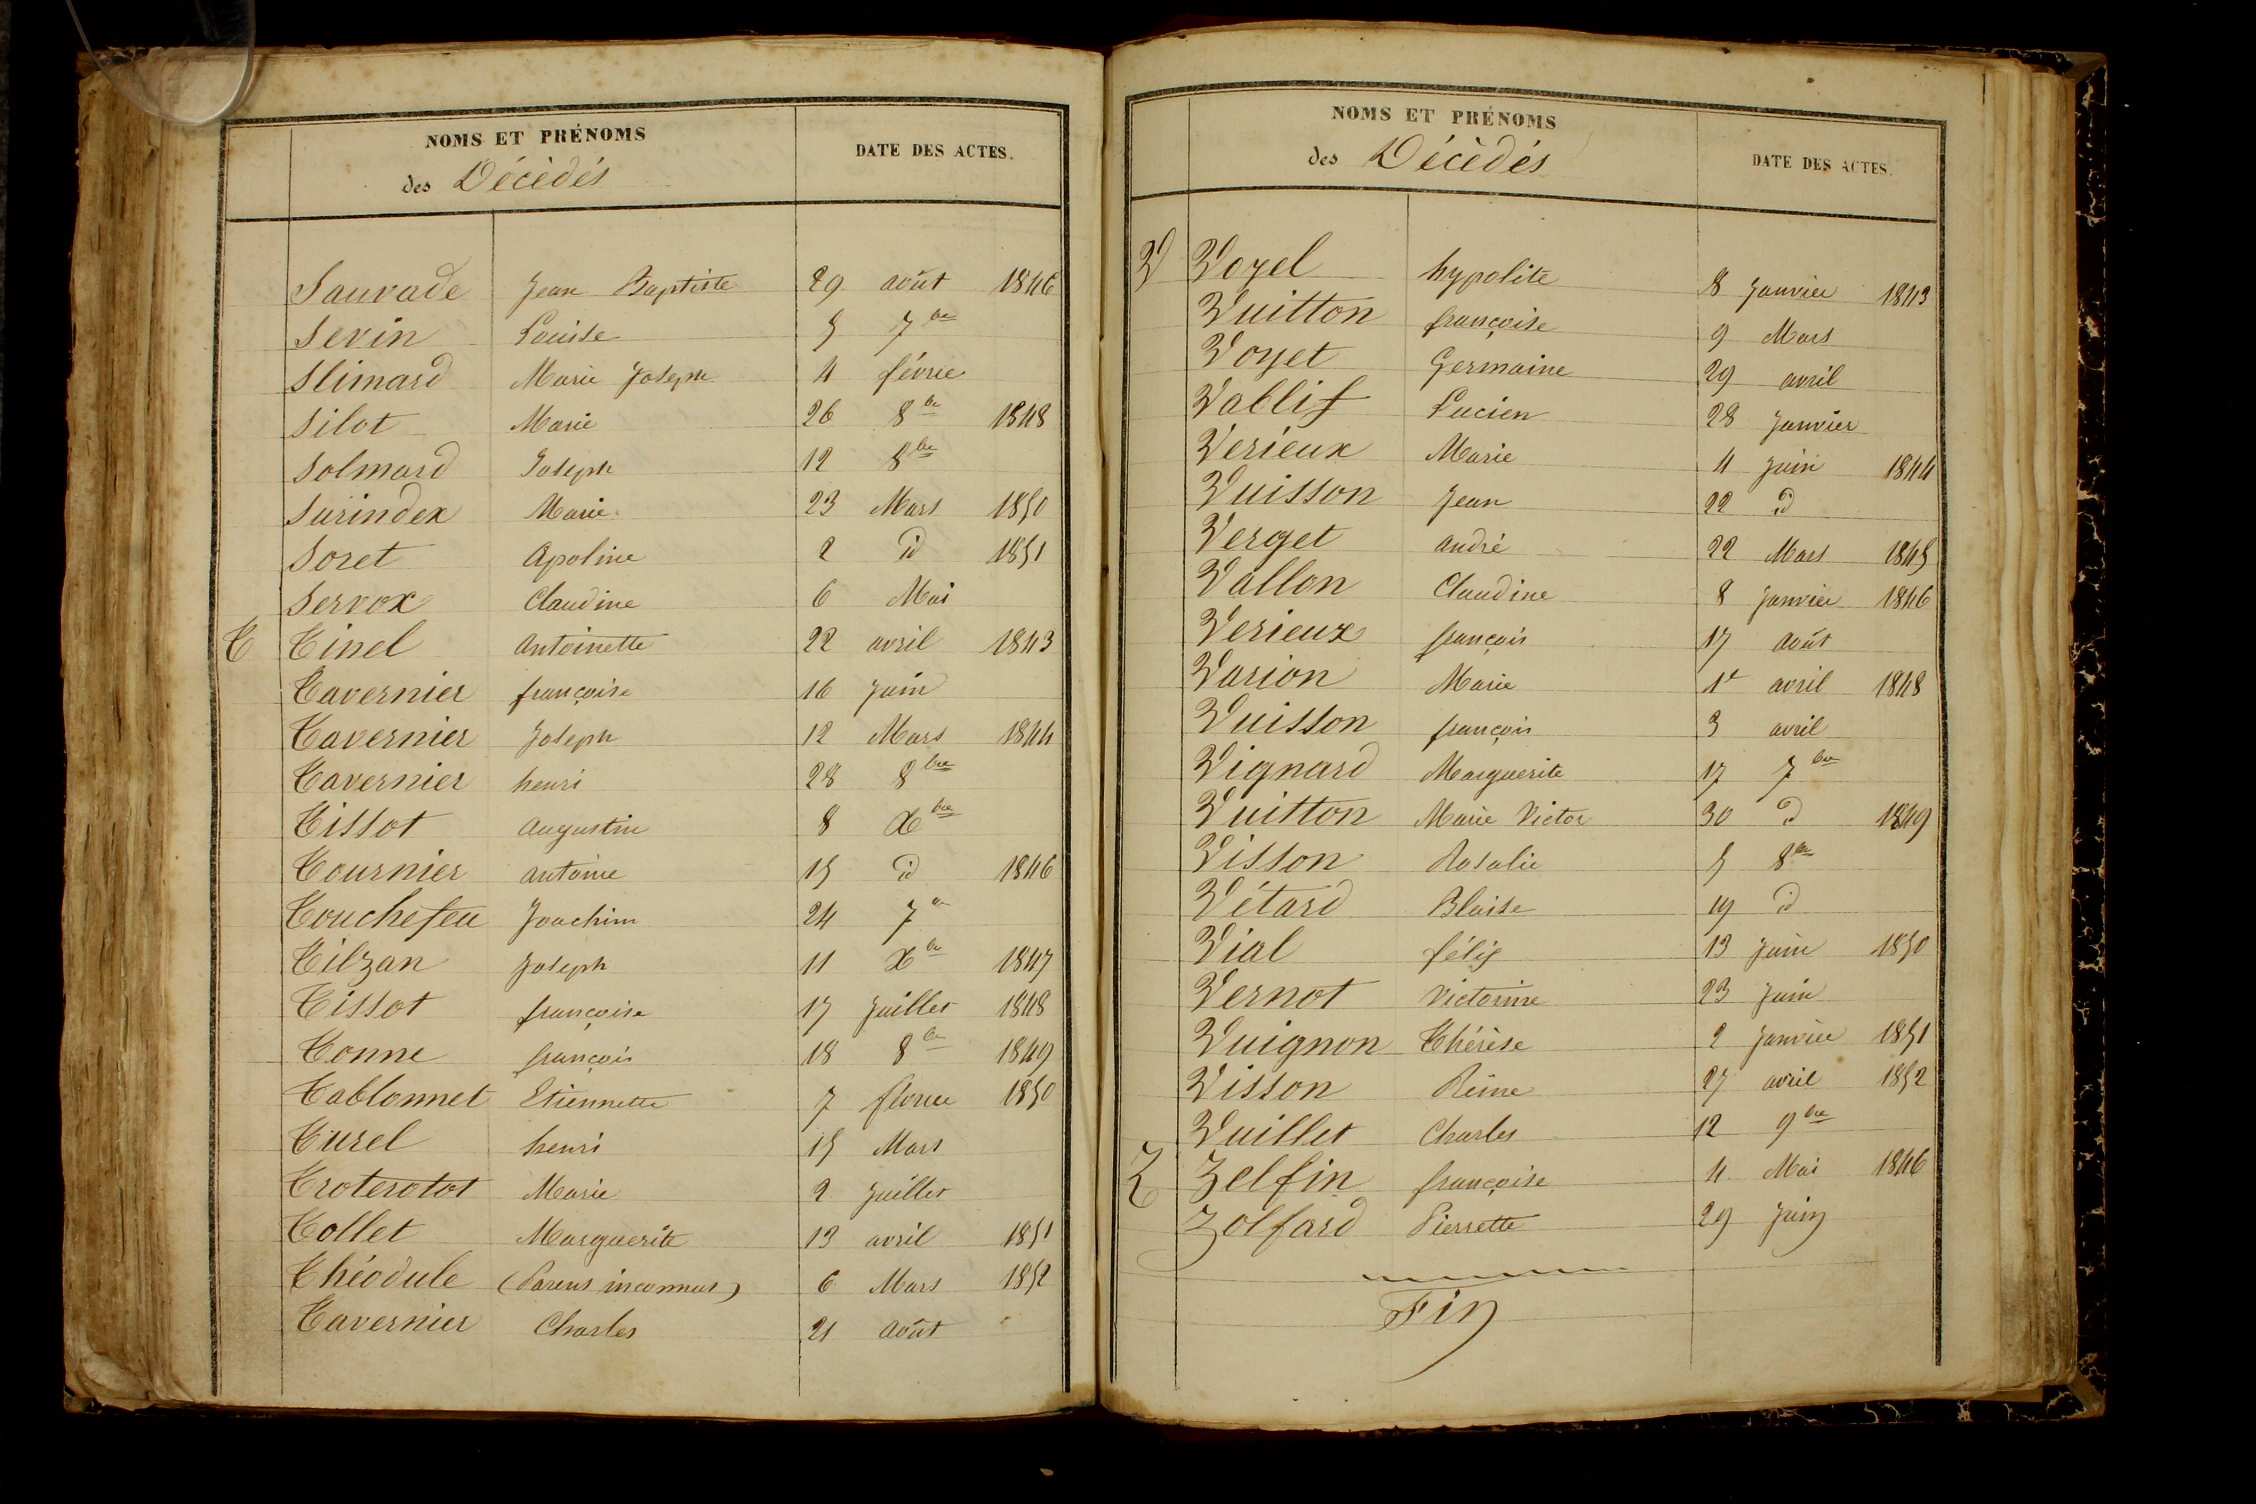 NOMS ET PRÉNOMS
des Décédés
DATE DES ACTES.
Sauvade Jean Baptiste 29 août 1846
Sevin Louise 5 7bre
Slimard Marie Joseph 4 février
Silot Marie 26 8bre 1848
Solmard Joseph 12 8bre
Surindex Marie 23 Mars 1850
Soret Apoline 2 id 1851
Servox Claudine 6 Mai
T Tinel Antoinette 22 avril 1843
Tavernier françoise 16 Juin
Tavernier Joseph 12 Mars 1844
Tavernier henri 28 8bre
Tissot Augustin 8 Xbre
Tournier Antoine 15 id 1846
Touchefeu Joachim 24 7bre
Tilzan Joseph 11 Xbre 1847
Tissot françoise 17 Juillet 1848
Tonne françois 18 8bre 1849
Tablonnet Etiennette 7 1850
Turel henri 15 Mars
Troterotot Marie 2 Juillet
Tollet Marguerite 13 avril 1851
Théodule (Parens inconnus) 6 Mars 1852
Tavernier Charles 21 Août
NOMS ET PRÉNOMS
des Décédés
DATE DES ACTES.
V Voyel hypolite 8 Janvier 1843
Vuitton françoise 9 Mars
Voyet Germaine 29 avril
Vablif Lucien 28 Janvier
Verieux Marie 4 Juin 1844
Vuisson Jean 22 id
Verget André 22 Mars 1845
Vallon Claudine 8 Janvier 1846
Verieux françois 17 Août
Varion Marie 1er avril 1848
Vuisson françois 3 avril
Vignard Marguerite 17 7bre
Vuitton Marie Victor 30 d 1849
Visson Rosalie 5 8bre
Vétard Blaise 19 d
Vial félix 13 Juin 1850
Vernot Victorine 23 Juin
Vuignon Thérèse 2 Janvier 1851
Visson Reine 27 avril 1852
Vuillet Charles 12 9bre
Z Zelfin françoise 4 Mai 1846
Zolfard Pierrette 29 Juin
Fin